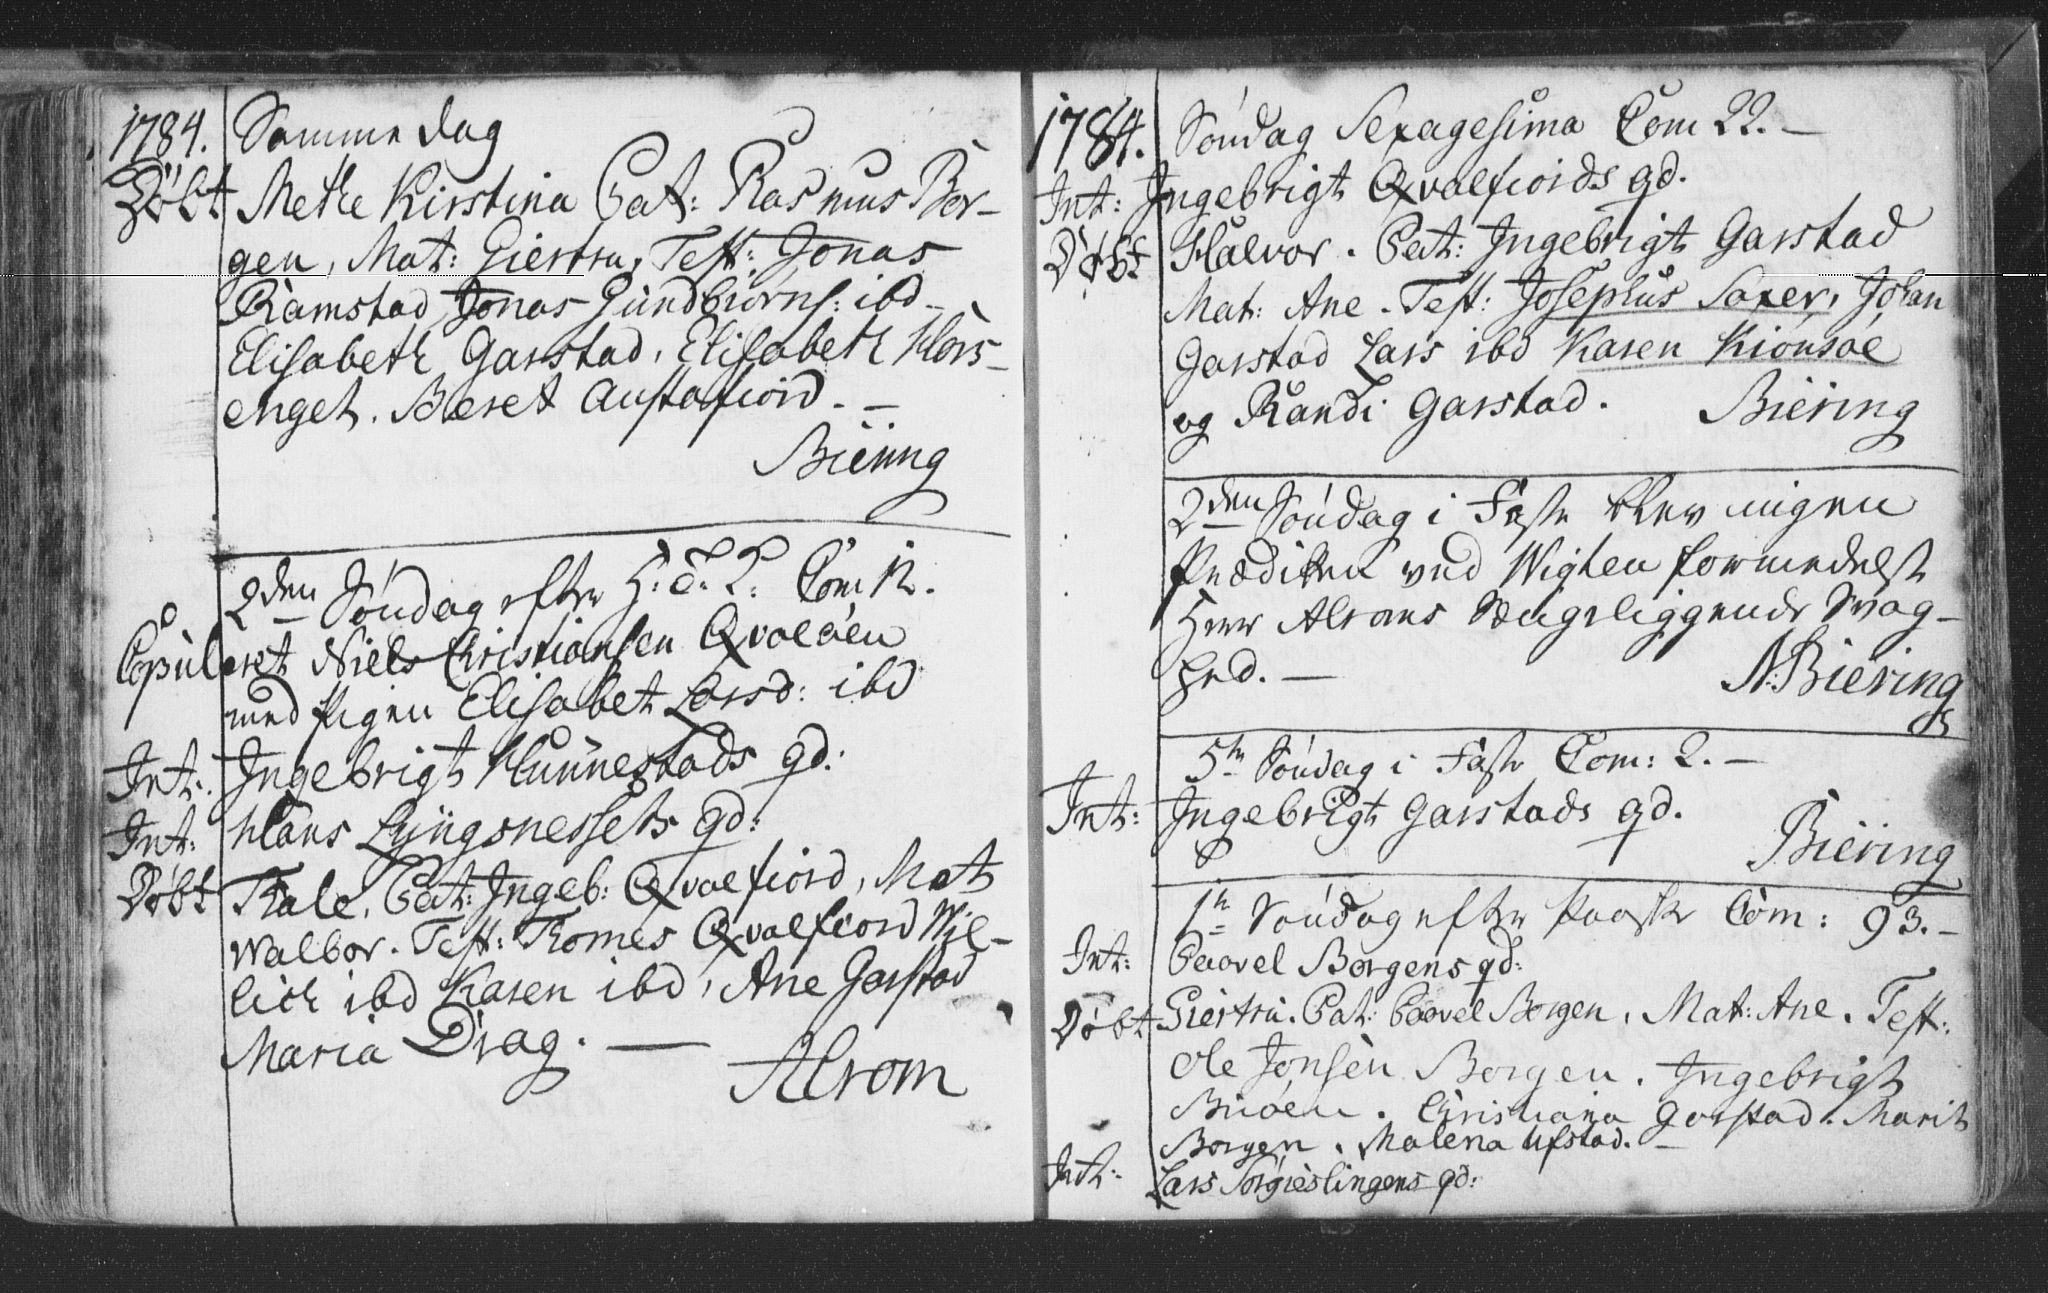 1784. Samme dag
Døbt Methe Kirstina Pat: Rasmus Bor-
gen, Mat: Giertru, Test: Jonas
Ramstad, Jonas Gundbiørns: ibd
Elisabeth Garstad, Elisabeth Hors-
enget. Beret Austafiord. —
Biering
2den Søndag efter H: 3: K: Com 12.
Copuleret Niels Christiansen Qvaløen
med pigen Elisabet Larsd: ibd
Int: Ingebrigt Hunnestads qd:
Int: Hans Lyngsnessets qd:
Døbt Kale, Pat: Ingeb: Qvalfiord, Mat
Walbor. Test: Thomes Qvalfiord Wil-
lich ibd Karen ibd, Ane Garstad
Maria Drag. —
Alrom
1784. Søndag Sexagesima Com 22. —
Int: Ingebrigt Qvalfiords qd.
Døbt Halvor. Pat: Ingebrigt Garstad
Mat: Ane. Test: Josephus Saxer, Johan
Garstad Lars ibd Karen Kiønsøe
og Randi Garstad. Biering
2den Søndag i Faste blev ingen
Prædiken ved Wigten formedelst
Herr Alroms Sængeliggende Svag-
hed. — N: Biering
5te Søndag i Faste Com: 2. —
Int: Ingebrigt Garstads qd.
Biering
1te Søndag efter Paaske Com: 93. —
Int: Paovel Borgens qd:
Døbt Giertru. Pat: Paovel Borgen, Mat: Ane. Test:
Ole Jonsen Borgen. Ingebrigt
Buøen. Christiana Garstad. Marit
Borgen. Malena Ufstad. —
Int: Lars Torgieslingens qd: